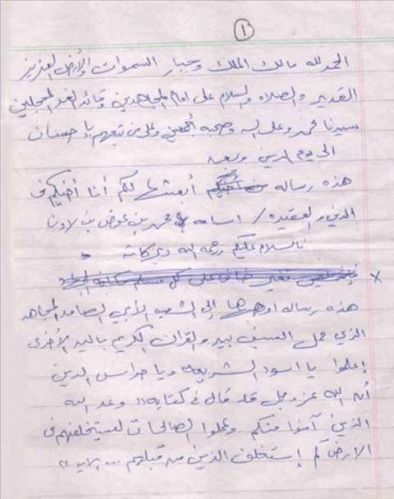 ١
الحمد لله مالك الملك وجبار السموات والأرض العزيز
القدير والصلاه والسلام على امام المجاهدين وقائد الغر المحجلين
سيدنا محمد وعلى اله وصحبه أجمعين وعلى من تبعهم باحسان
الى يوم الدين وبعد
هذه رساله أبعثها لكم أنا أخيكم في
الدين والعقيده / اسامه محمد بن عوض بن لادن
فالسلام عليكم ورحمة الله وبركاته
x
هذه رساله اوجهها إلى الشعب الأبي الصامد المجاهد
الذي حمل السيف بيد والقرآن الكريم باليد الأخرى
إعلموا يا اسود الشريعه ويا حراس الدين
أن الله عز وجل قد قال في كتابه (( وعد الله
الذين آمنوا منكم وعملوا الصالحات ليستخلفنهم في
الارض كما إستخلف الذين من قبلهم ... الايه ))